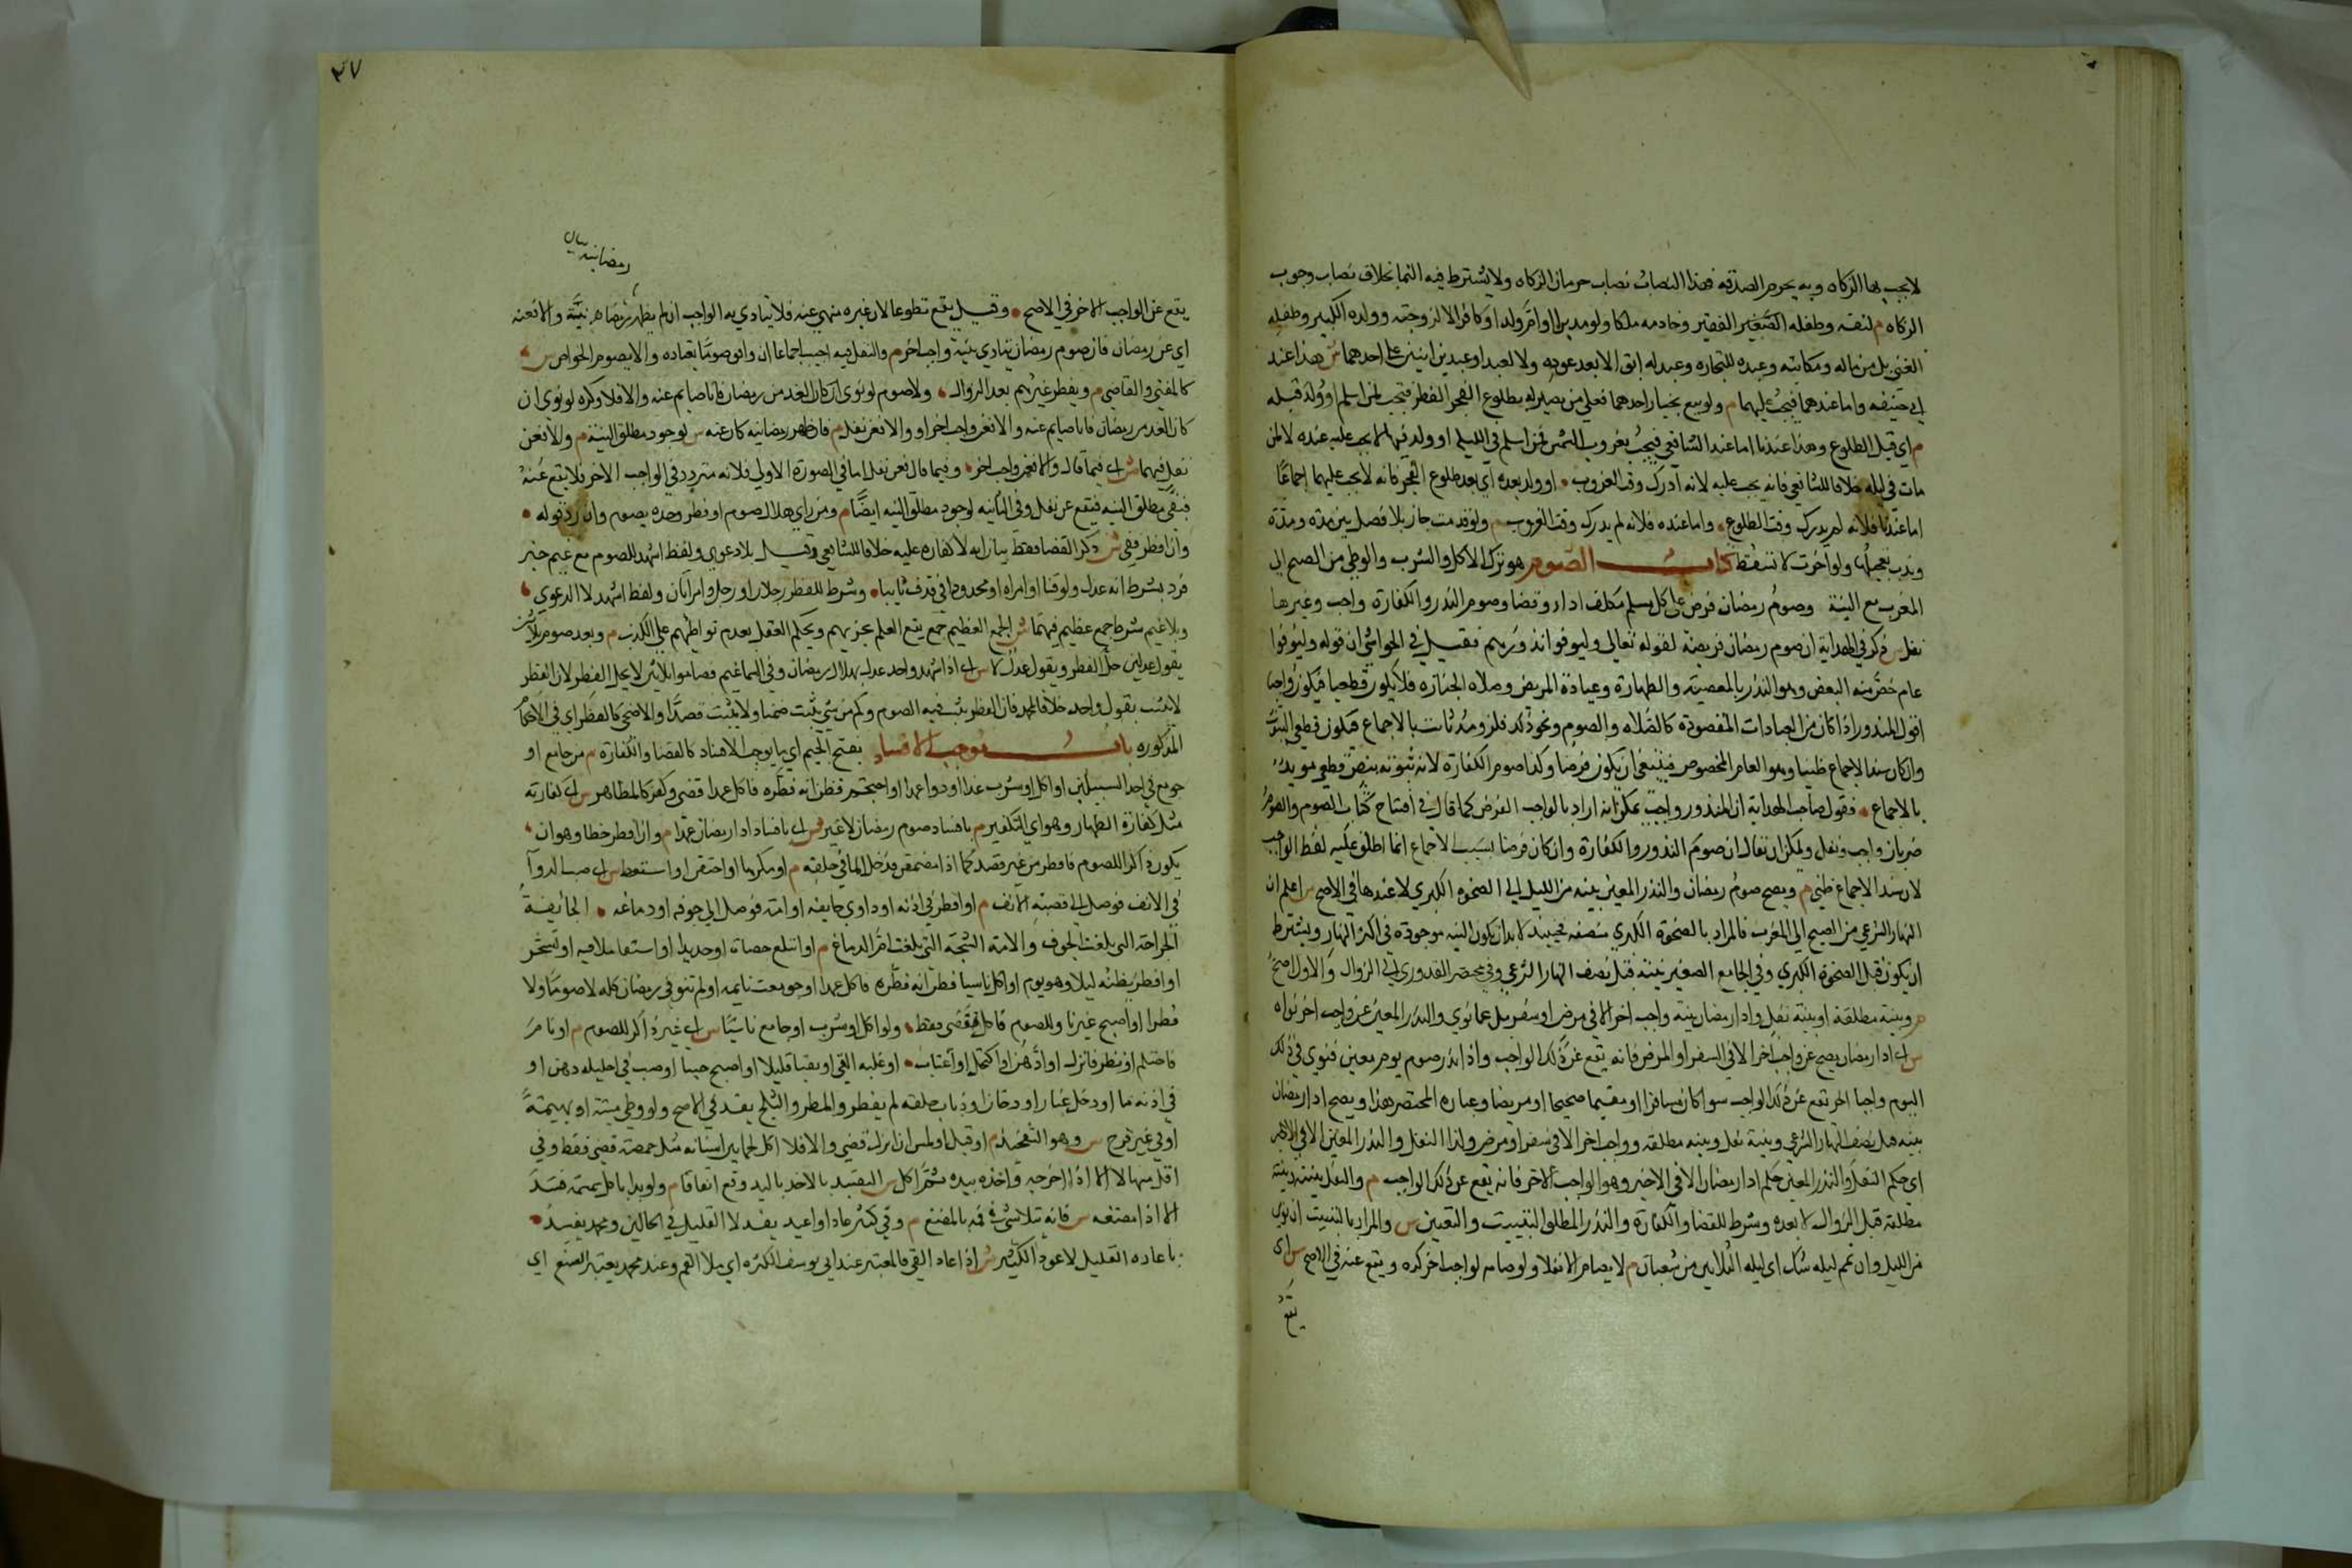 لا تجب بها الزكاه وبه يحرم الصدقة فهذا النصاب نصاب حرمان الزكاه ولا يشترط فيه النما بخلاف نصاب وجوب
الزكاه م لنفسه وطفله الصغير الفقير وخادمه ملكا ولو مدبرا او ام ولد او كافرا لا لزوجته وولده الكبير وطفله
الغنى بل من ماله ومكاتبه وعبده للتجاره وعبد له ابق الا بعد عوده ولا لعبد او عبيد بين اثنين على احدهما ش هذا عند
ابي حنيفه واما عندهما فيجب عليهما م ولو بيع بخيار احدهما فعلى من يصير له بطلوع الفجر الفطر فتجب لمن اسلم او ولد قبله
م اي قبل الطلوع وهذا عندنا اما عند الشافعي فيجب بغروب الشمس فمن اسلم في الليل او ولد فيها لا يجب عليه عنده لا لمن
مات في ليله خلافا للشافعي فانه يجب عليه لانه ادرك وقت الغروب او ولد بعده اي بعد طلوع الفجر فانه لا يجب عليهما اجماعا
اما عندنا فلانه لم يدرك وقت الطلوع واما عنده فلانه لم يدرك وقت الغروب م ولو قدمت جاز بلا فصل بين مدة ومدة
وندب تعجيلها ولو اخرت لا تسقط كتاب الصوم هو ترك الاكل والشرب والوطي من الصبح الى
المغرب مع النية وصوم رمضان فرض على كل مسلم مكلف اداء وقضا وصوم النذر والكفارة واجب وغيرها
نفل س ذكر في الهداية ان صوم رمضان فريضة لقوله تعالى وليوفوا نذورهم فقيل في الحواشي ان قوله وليوفوا
عام خص منه البعض وهو النذر بالمعصية والطهارة وعيادة المريض وصلاه الجنازه فلا يكون قطعيا فيكون واجبا
اقول المنذور اذا كان من العبادات المقصودة كالصلاه والصوم ونحو ذلك فلزومه ثابت بالاجماع فيكون قطعي الثبوت
وان كان سند الاجماع ظنيا وهو العام المخصوص فينبغي ان يكون فرضا وكذا صوم الكفارة لانه ثبوته بنص قطعي مويد
بالاجماع فقول صاحب الهداية ان المنذور واجب يمكن انه اراد بالواجب الفرض كما قال في افتتاح كتاب الصوم والصوم
ضربان واجب ونفل ويمكن ان يقال ان صوم النذور والكفارة وان كان فرضا بسبب لاجماع انما اطلق عليه لفظ الواجب
لان سند الاجماع ظني م ويصح صوم رمضان والنذر المعين بنية من الليل الى الضحوه الكبرى لا عندها في الاصح س اعلم ان
النهار الشرعي من الصبح الى المغرب فالمراد بالضحوة الكبرى منصفه فحينئذ لا بد ان يكون النيه موجودة في اكثر النهار ويشترط
ان يكون قبل الضحوة الكبرى وفي الجامع الصغير بنيته قبل نصف النهار الشرعي وفي مختصر القدوري الى الزوال والاول اصح
م وبنية مطلقة او بنية نفل واداء رمضان بنية واجب اخر الا في مرض او سفر بل عما نوى والنذر المعين عن واجب اخر نواه
س اى اداء رمضان يصح عن واجب اخر الا في السفر او المرض فانه يقع عن ذلك الواجب واذا نذر صوم يوم معين فنوى في ذلك
اليوم واجبا اخر يقع عن ذلك الواجب سوا كان مسافرا او مقيما صحيحا او مريضا وعباره المختصر هذا ويصح اداء رمضان
بنيه قبل نصف النهار الشرعي وبنية نفل وبنيه مطلقه وواجب اخر الا في سفر او مرض وكذا النفل والنذر المعين الا في الاخير
اى حكم النفل والنذر المعين حكم اداء رمضان الا في الاخير وهو الواجب الاخر فانه يقع عن ذلك الواجب م والنفل بنيته وبنية
مطلقة قبل الزوال لا بعده وشرط للقضا والكفارة والنذر المطلق التبييت والتعيين س والمراد بالتبييت ان ينوى
من الليل وان غم ليله شك اى ليله الثلاثين من شعبان م لا يصام الا نفلا ولو صامه لواجب اخر كره ويقع عنه في الاصح س اى
يقع
٣٧
رمضانيته بيان
يقع عن الواجب الاخر في الاصح وقيل يقع تطوعا لان غيره منهي عنه فلا يتادي به الواجب ان لم يظهر رمضانيته والا فعنه
اي عن رمضان فان صوم رمضان يتادي بنية واجب اخر م والنفل فيه احب اجماعا ان وافق صوما يعتاده والا يصوم الخواص س
كالمفتي والقاضي م ويفطر غيرهم بعد الزوال ولا صوم لو نوى ان كان الغد من رمضان فانا صايم عنه والا فلا وكره لو نوى ان
كان الغد من رمضان فانا صايم عنه والا فعن واجب اخر او والا فعن نفل م فان ظهر رمضانيه كان عنه س لوجود مطلق النية م والا فعن
نفل فيهما ش اى فيما قال والا فعن واجب اخر وفيما قال فعن نفل اما في الصورة الاولى فلانه متردد في الواجب الاخر فلا يقع عنه
فبقي مطلق النيه فيقع عن نفل وفي الثانيه لوجود مطلق النيه ايضا م ومن راى هلال صوم او فطر وحده يصوم وان رد قوله
وان افطر قضى ش ذكر القضا فقط بيان انه لا كفاره عليه خلافا للشافعي وقبل بلا دعوى ولفظ اشهد للصوم مع غيم خبر
فرد بشرط انه عدل ولو قنا او امراه او محدودا في قذف تايبا وشرط للفطر رجلان او رجل وامراتان ولفظ اشهد لا الدعوى
وبلا غيم شرط جمع عظيم فيهما ش الجمع العظيم جمع يقع العلم بخبرهم ويحكم العقل بعدم تواطئهم على الكذب م وبعد صوم ثلاثين
بقول عدلين حل الفطر وبقول عدل لا س اى اذا شهد واحد عدل بهلال رمضان وفي السما غيم فصاموا ثلاثين لا يحل الفطر لان الفطر
لا يثبت بقول واحد خلافا لمحمد فان الفطر يثبت فيه الصوم وكم من شي يثبت ضمنا ولا يثبت قصدا والاضحى كالفطر اي في الاحكام
المذكوره باب موجب الافساد بفتح الجيم اي ما يوجبه الافساد كالقضا والكفارة م من جامع او
جومع في احد السبيلين او اكل او شرب غذا او دوا عمدا او احتجم فظن انه فطره فاكل عمدا قضى وكفر كالمظاهر س اى كفارته
مثل كفارة الظهار وهو اي التكفير م بافساد صوم رمضان لا غير ش اى بافساد اداء رمضان عمدا م وان افطر خطا وهو ان
يكون ذاكرا للصوم فافطر من غير قصد كما اذا مضمض فدخل الما في حلقه م او مكرها او احتقن او استعط س اى صب الدوا
في الانف فوصل الى قصبته الانف م او اقطر في اذنه او داوى جايفه او امة فوصل الى جوفه او دماغه الجايفة
الجراحة التى بلغت الجوف والامة الشجة التى بلغت ام الدماغ م او ابتلع حصاة او حديدا او استقا ملا فيه او تسحر
او افطر يظنه ليلا وهو يوم او اكل ناسيا فظن انه فطره فاكل عمدا او جومعت نايمه او لم ينو في رمضان كله لا صوما ولا
فطرا او اصبح غير ناو للصوم فاكل قضى فقط ولو اكل او شرب او جامع ناسيا س اى غير ذاكر للصوم م او نام
فاحتلم او نظر فانزل او ادهن او اكتحل او اغتاب او غلبه القي او تقيا قليلا او اصبح جنبا او صب في احليله دهن او
في اذنه ما او دخل غبار او دخان او ذباب حلقه لم يفطر والمطر والثلج يفسد في الاصح ولو وطي ميتة او بهيمة
او في غير فرج س وهو التفخيذ م او قبل او لمس ان انزل قضى والا فلا اكل لحما بين اسنانه مثل حمصة قضى فقط وفي
اقل منها لا الا اذا اخرجه واخذه بيده ثم اكل س التقييد بالاخذ باليد وقع اتفاقا م ولو بدا باكل سمسمة فسد
الا اذا مضغه س فانه يتلاشى في فمه بالمضغ م وقي كثير عاد او اعيد يفسد لا القليل في الحالين ومحمد يفسد
باعاده القليل لا عود الكثير ش اذا عاد القي فالمعتبر عند ابي يوسف الكثره اي ملا الفم وعند محمد يعتبر الصنع اي